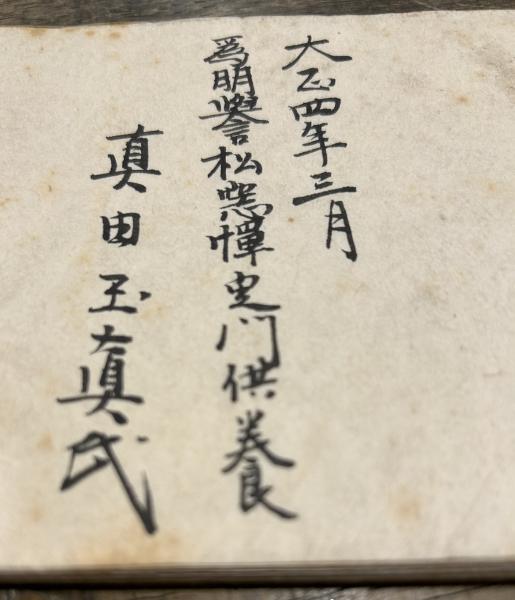 大正四年三月
為明譽松窓禅定門供養
真田玉真氏